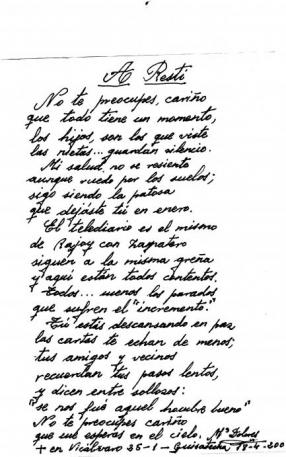 A Resti
No te preocupes, cariño
que todo tiene un momento,
los hijos, son los que viste
las nietas... guardan silencio.
Mi salud, no se resiente
aunque ruedo por los suelos;
sigo siendo la patosa
que dejáste tú en enero.
El telediario es el mismo
de Rajoy con Zapatero
siguen a la misma greña
y aquí están todos contentos.
Todos... menos los parados
que sufren el "incremento."
Tú estás descansando en paz
las cartas te echan de menos;
tus amigos y vecinos
recuerdan tus pasos lentos,
y dicen entre sollozos:
"se nos fué aquel hombre bueno"
No te preocupes cariño
que me esperas en el cielo. Mª Dolores
+ en Vicálvaro 25-1- 18-4-200